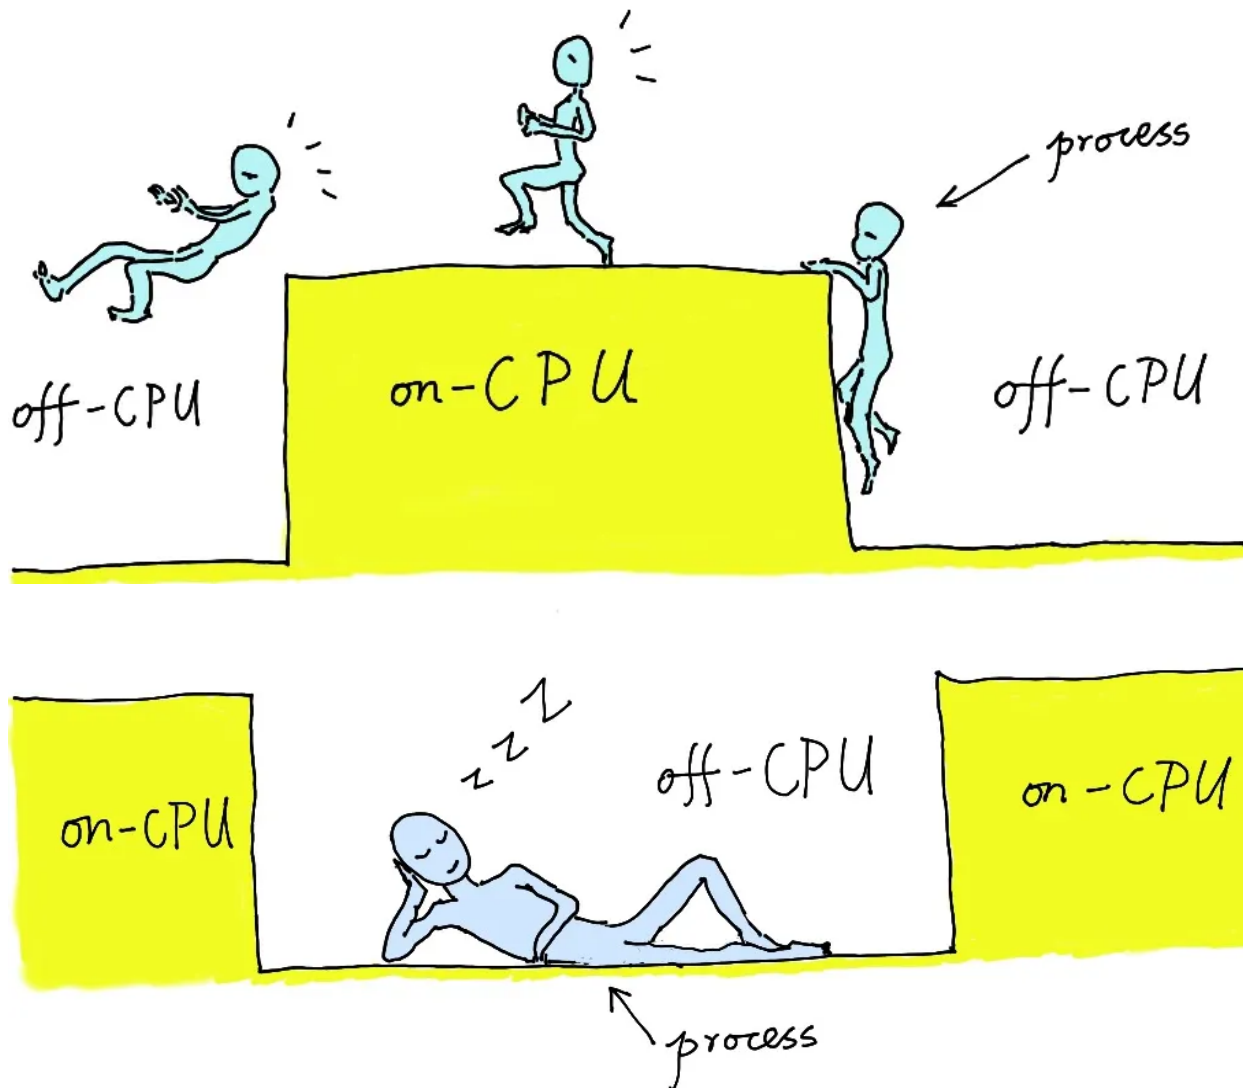 process
off-CPU
on-CPU
off-CPU
z z z
off-CPU
on-CPU
on-CPU
process